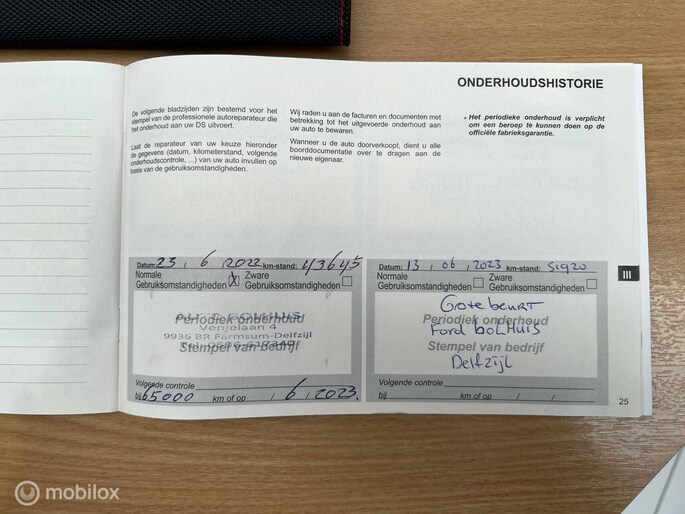 ONDERHOUDSHISTORIE
De volgende bladzijden zijn bestemd voor het
stempel van de professionele autoreparateur die
het onderhoud aan uw DS uitvoert.
Laat de reparateur van uw keuze hieronder
de gegevens (datum, kilometerstand, volgende
onderhoudscontrole, ...) van uw auto invullen op
basis van de gebruiksomstandigheden.
Wij raden u aan de facturen en documenten met
betrekking tot het uitgevoerde onderhoud aan
uw auto te bewaren.
Wanneer u de auto doorverkoopt, dient u alle
boorddocumentatie over te dragen aan de
nieuwe eigenaar.
- Het periodieke onderhoud is verplicht
om een beroep te kunnen doen op de
officiële fabrieksgarantie.
Datum: 23 , 6 , 2022 km-stand: 43645
Normale
Gebruiksomstandigheden X
Zware
Gebruiksomstandigheden
Periodiek onderhoud
Venjelaan 4
9936 BR Farmsum-Delfzijl
Stempel van bedrijf
Volgende controle
bij 65000 km of op / 6 / 2023.
Datum: 13 , 06 , 2023 km-stand: 51920
Normale
Gebruiksomstandigheden
Zware
Gebruiksomstandigheden
Grote beurt
Periodiek onderhoud
Ford bolHuis
Stempel van bedrijf
Delfzijl
Volgende controle
bij km of op / /
III
25
mobilox